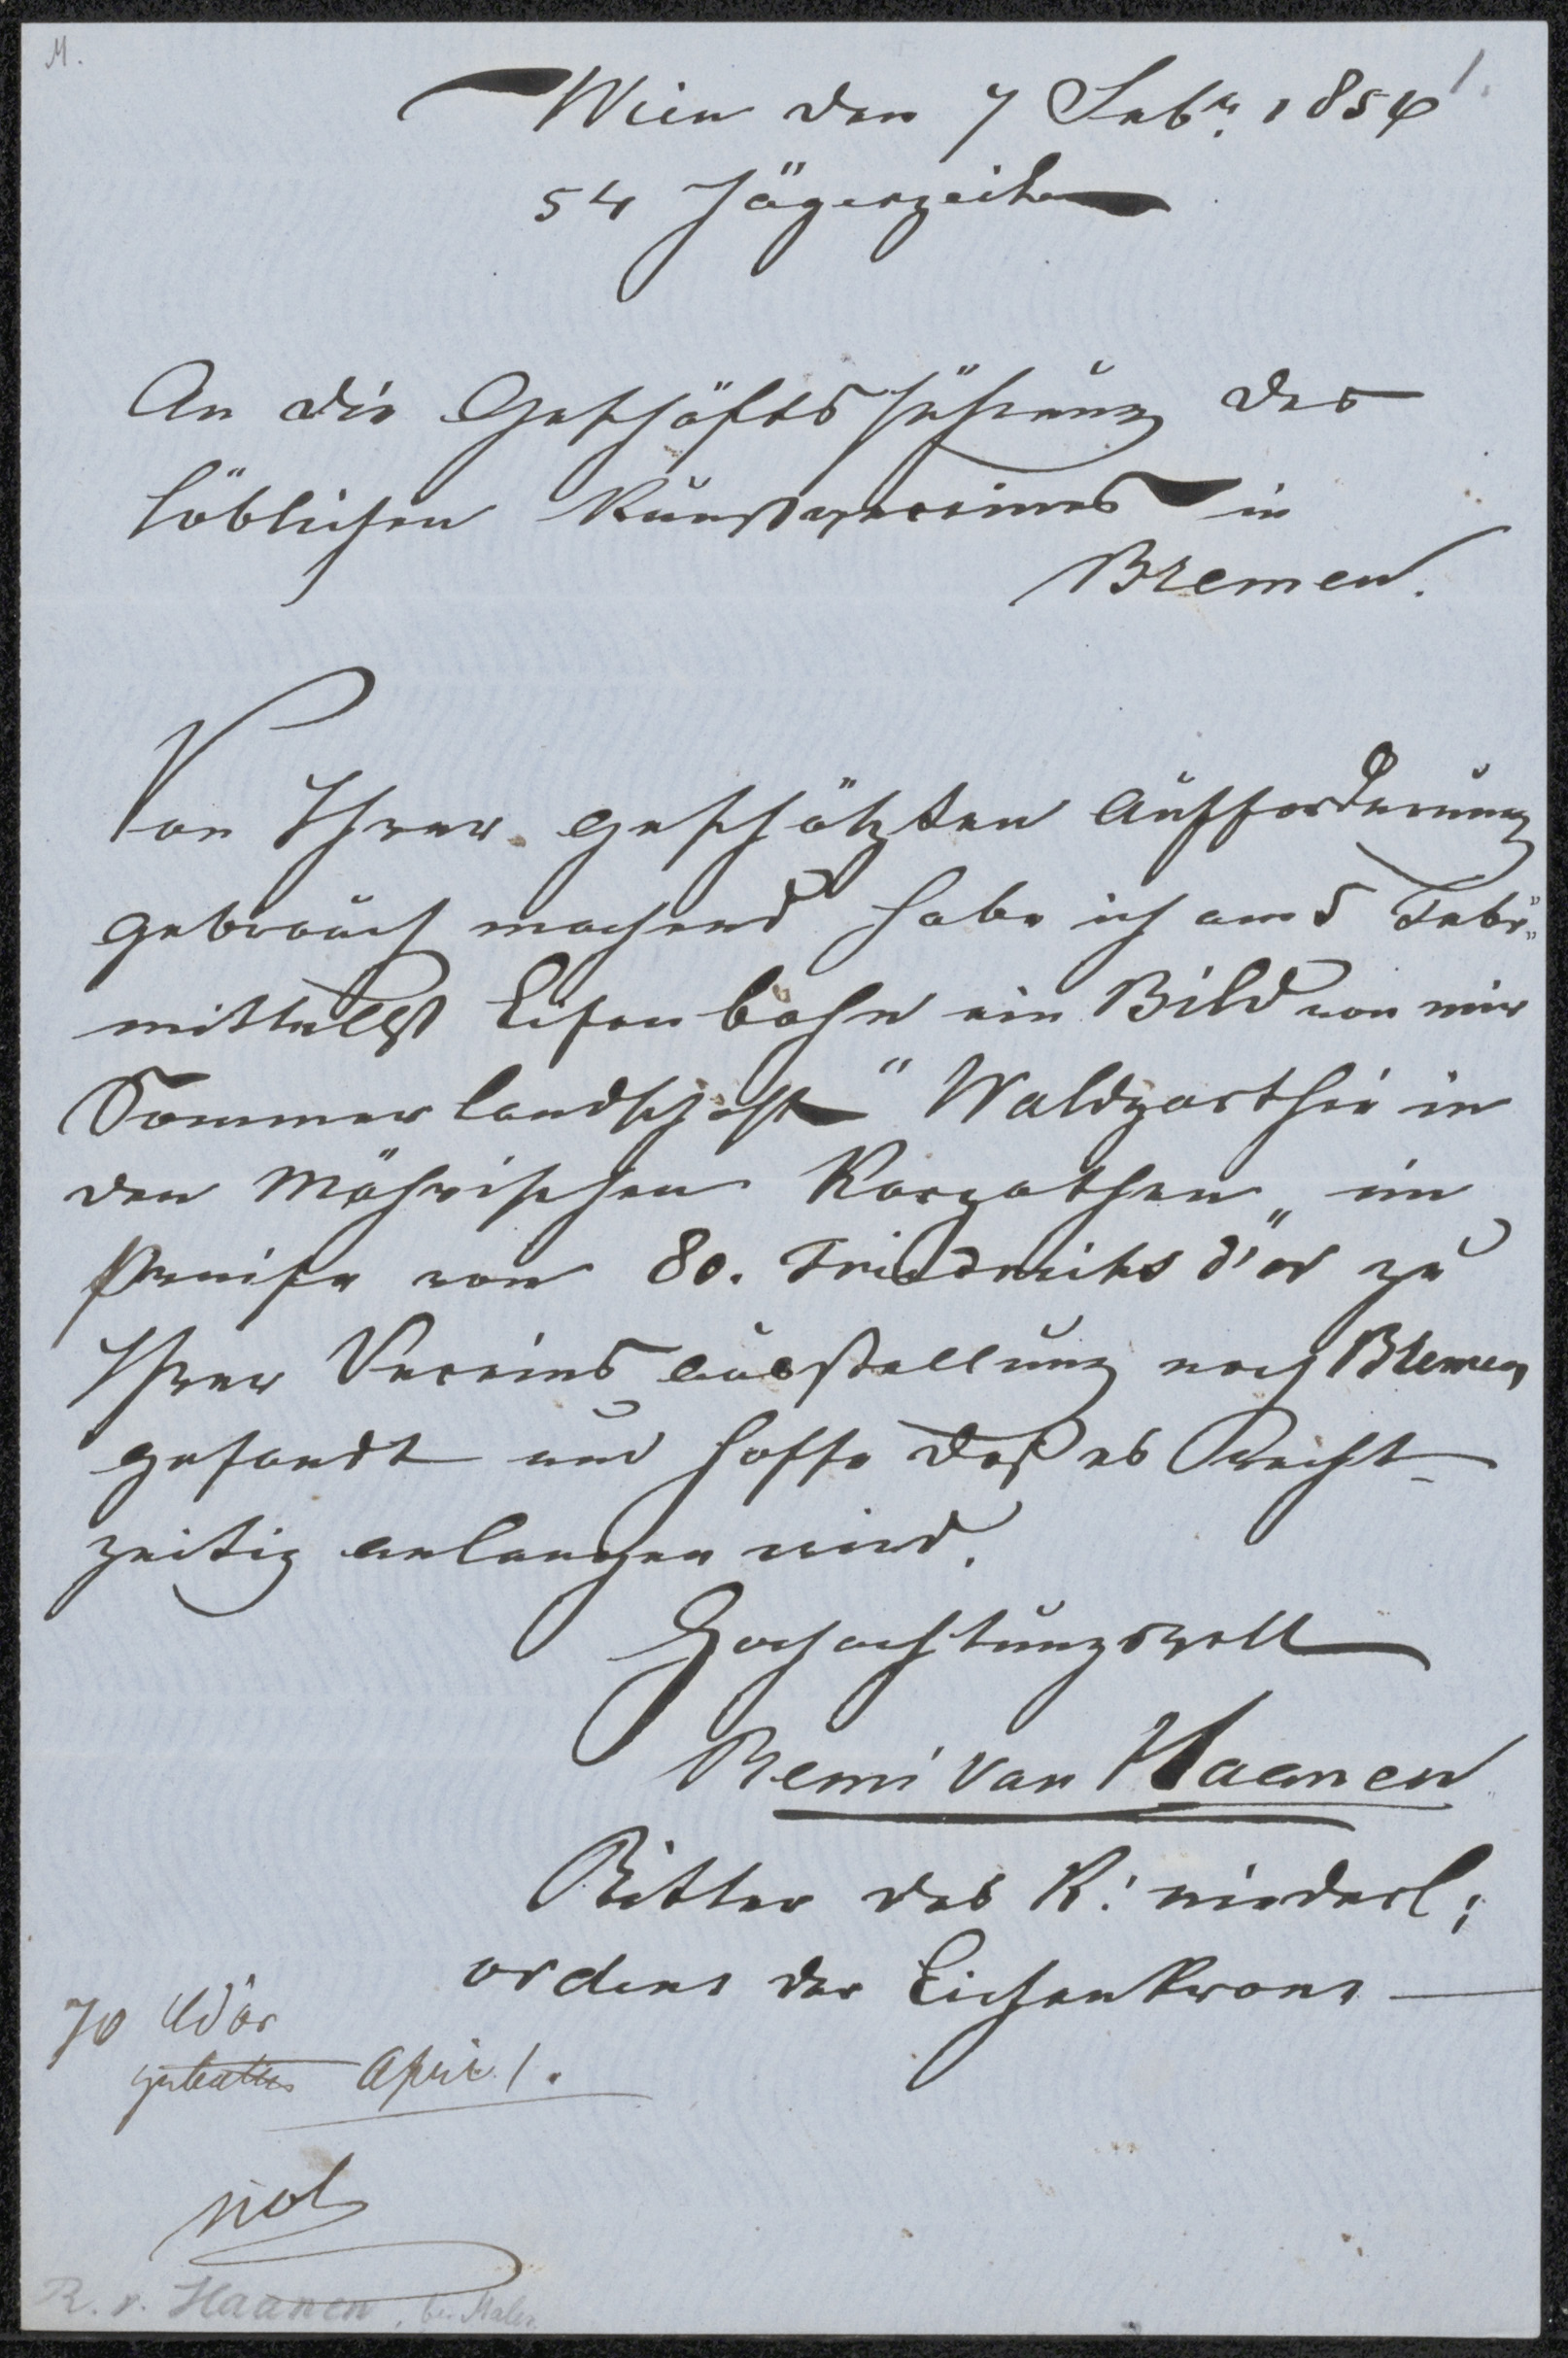 M.
1.
Wien den 7 Febr. 1854
54 Jägerzeile
An die Geschäftsführung des
löblichen Kunstvereines in
Bremen.
Von Ihrer geschätzten Aufforderung
gebrauch machend habe ich am 5 Febr.
mittelst Eisenbahn ein Bild von mir
Sommerlandschaft "Waldparthie in
den Mährischen Karpathen" im
Preise von 80. Friedrichs d'or zu
Ihrer Vereins ausstellung nach Bremen
gesandt und hoffe daß es Recht-
zeitig anlangen wird.
Hochachtungsvoll
Remi van Haanen
Ritter des K: niederl:
ordens der Eichenkrone
70 Ld'or
April 1.
not
R. v. Haanen, ber. Maler.